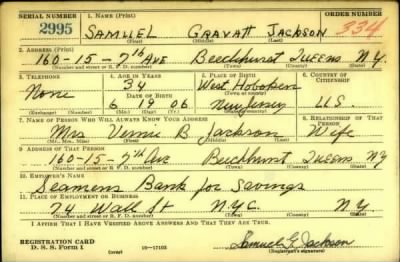 SERIAL NUMBER 1. NAME (Print) ORDER NUMBER
2995 SAMUEL GRAVATT JACKSON 334
(First) (Middle) (Last)
2. ADDRESS (Print)
160-15-7th AVE Beechhurst Queens N.Y.
(Number and street or R. F. D. number) (Town) (County) (State)
3. TELEPHONE 4. AGE IN YEARS 5. PLACE OF BIRTH 6. COUNTRY OF CITIZENSHIP
None 34 West Hoboken
DATE OF BIRTH (Town or county)
6 19 06 New Jersey U.S.
(Exchange) (Number) (Mo.) (Day) (Yr.) (State or country)
7. NAME OF PERSON WHO WILL ALWAYS KNOW YOUR ADDRESS 8. RELATIONSHIP OF THAT PERSON
Mrs B Jackson Wife
(Mr., Mrs., Miss) (First) (Middle) (Last)
9. ADDRESS OF THAT PERSON
160-15-7th Ave Beechhurst Queens NY
(Number and street or R. F. D. number) (Town) (County) (State)
10. EMPLOYER'S NAME
Seamens Bank for Savings
11. PLACE OF EMPLOYMENT OR BUSINESS
74 Wall St N.Y.C. NY
(Number and street or R. F. D. number) (Town) (County) (State)
I AFFIRM THAT I HAVE VERIFIED ABOVE ANSWERS AND THAT THEY ARE TRUE.
REGISTRATION CARD
D. S. S. Form 1 16-17105 Samuel G. Jackson
(Registrant's signature)